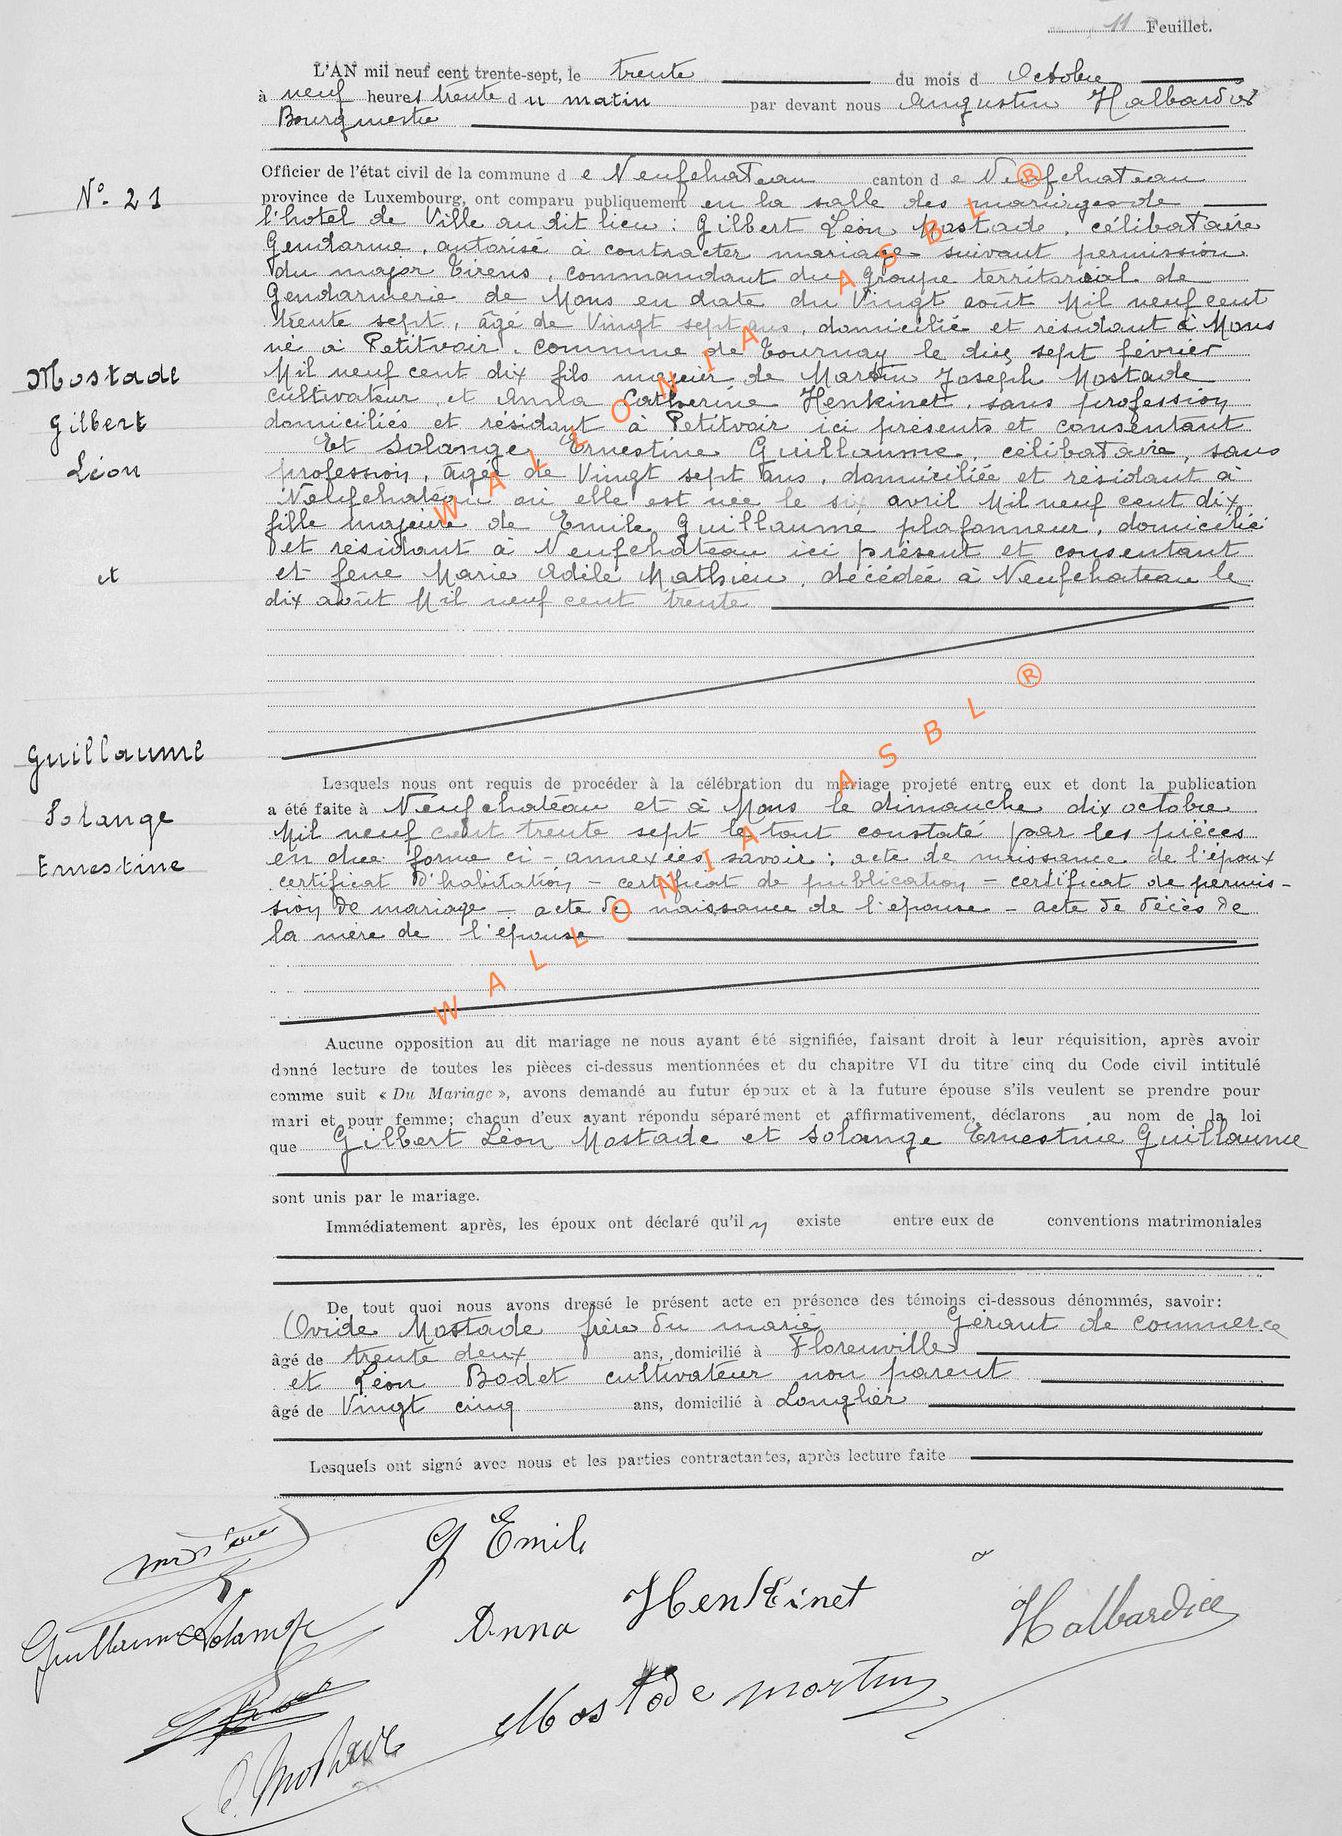 11 Feuillet.
L'AN mil neuf cent trente-sept, le trente du mois d Octobre
à neuf heures trente du matin par devant nous Augustin Halbardier
Bourgmestre
Officier de l'état civil de la commune de Neufchateau canton de Neufchateau
province de Luxembourg, ont comparu publiquement en la salle des mariages de
N° 21
l'hotel de Ville au dit lieu : Gilbert Léon Mostade, célibataire
Gendarme, autorisé à contracter mariage suivant permission
du major Tirens, commandant du groupe territorial de
Gendarmerie de Mons en date du Vingt août Mil neuf cent
trente sept, âgé de Vingt sept ans, domicilié et résidant à Mons
né à Petitvoir, commune de Tournay le dix sept février
Mil neuf cent dix fils majeur de Martin Joseph Mostade
cultivateur et Anna Catherine Henkinet, sans profession
domiciliés et résidant à Petitvoir ici présents et consentant
Et Solange Ernestine Guillaume, célibataire, sans
profession, âgée de Vingt sept ans, domiciliée et résidant à
Neufchateau où elle est née le six avril Mil neuf cent dix
fille majeure de Emile Guillaume plafonneur, domicilié
et résidant à Neufchateau ici présent et consentant
et feue Marie Adèle Mathieu, décédée à Neufchateau le
dix août Mil neuf cent trente
Mostade
Gilbert
Léon
et
Guillaume
Solange
Ernestine
Lesquels nous ont requis de procéder à la célébration du mariage projeté entre eux et dont la publication
a été faite à Neufchateau et à Mons le dimanche dix octobre
Mil neuf cent trente sept le tout constaté par les pièces
en due forme ci-annexées savoir : acte de naissance de l'époux
certificat d'habitation - certificat de publication - certificat de permis-
sion de mariage - acte de naissance de l'épouse - acte de décès de
la mère de l'épouse
Aucune opposition au dit mariage ne nous ayant été signifiée, faisant droit à leur réquisition, après avoir
donné lecture de toutes les pièces ci-dessus mentionnées et du chapitre VI du titre cinq du Code civil intitulé
comme suit « Du Mariage », avons demandé au futur époux et à la future épouse s'ils veulent se prendre pour
mari et pour femme; chacun d'eux ayant répondu séparément et affirmativement, déclarons au nom de la loi
que Gilbert Léon Mostade et Solange Ernestine Guillaume
sont unis par le mariage.
Immédiatement après, les époux ont déclaré qu'il n existe entre eux de conventions matrimoniales
De tout quoi nous avons dressé le présent acte en présence des témoins ci-dessous dénommés, savoir:
Ovide Mostade frère du marié Gérant de commerce
âgé de trente deux ans, domicilié à Florenville
et Léon Bodet cultivateur non parent
âgé de Vingt cinq ans, domicilié à Longlier
Lesquels ont signé avec nous et les parties contractantes, après lecture faite
G Emile
Guillaume Solange
Anna Henkinet
Halbardier
Mostade martin
O. Mostade
WALLONIA ASBL ®
WALLONIA ASBL ®